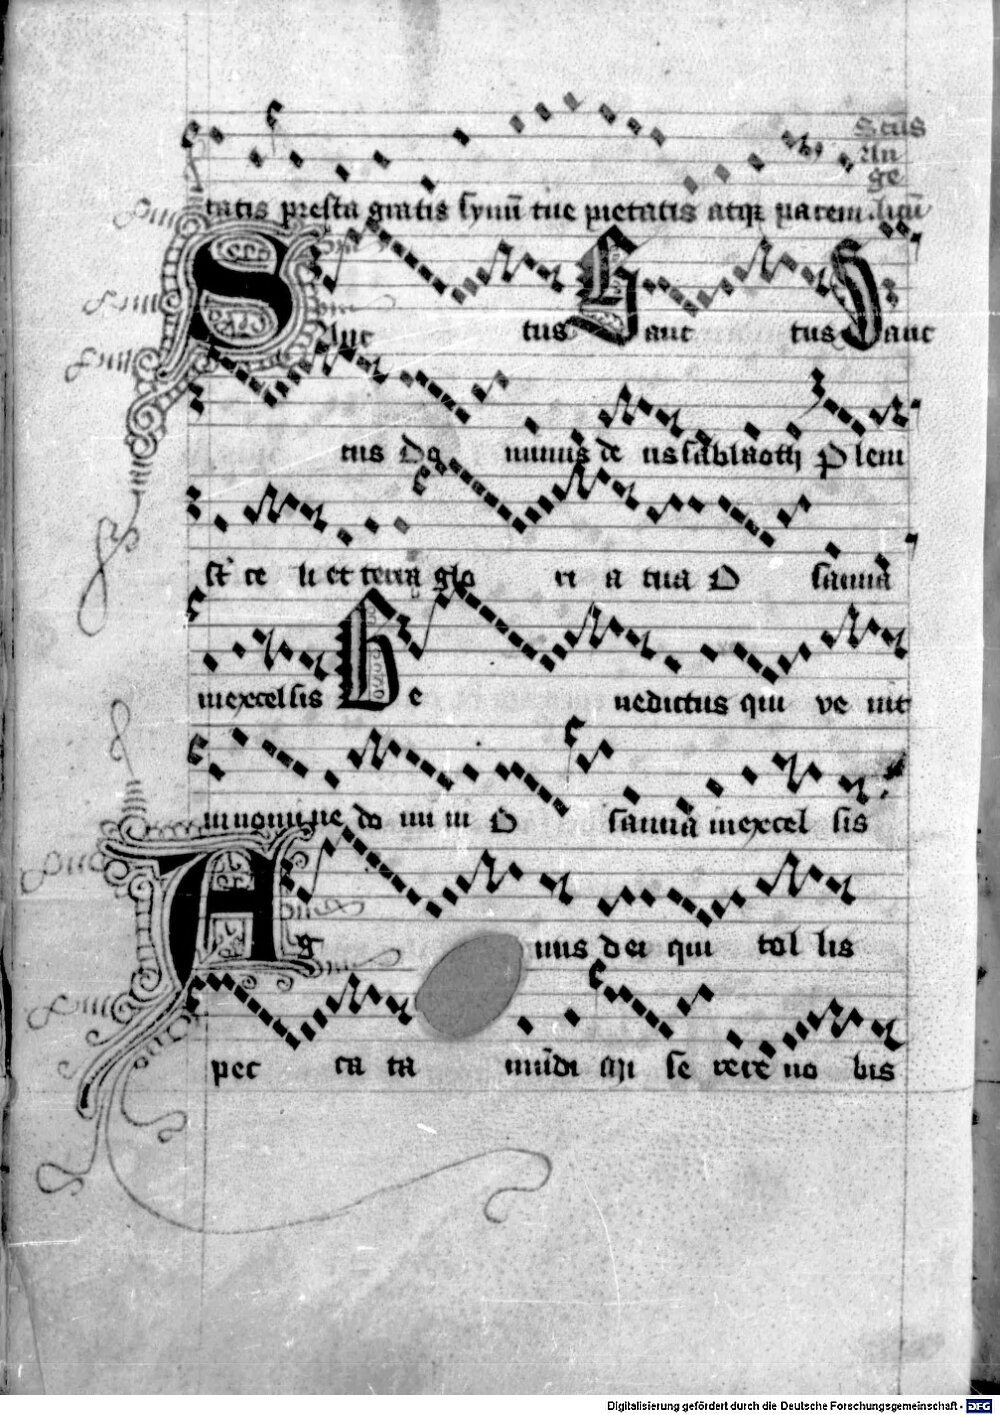 Sctus
An
ge
tatis presta gratis synū tue pietatis atqꝫ patem licū
Sanc tus Sanc tus Sanc
tus Do minus de us sabbaoth Pleni
st̄ ce li et terra glo ri a tua O sanna
inexcelsis Be nedictus qui ve nit
innomine do mi ni O sanna inexcel sis
Ag nus dei qui tol lis
pec ca ta mūdi mi se rere no bis
Digitalisierung gefördert durch die Deutsche Forschungsgemeinschaft - DFG